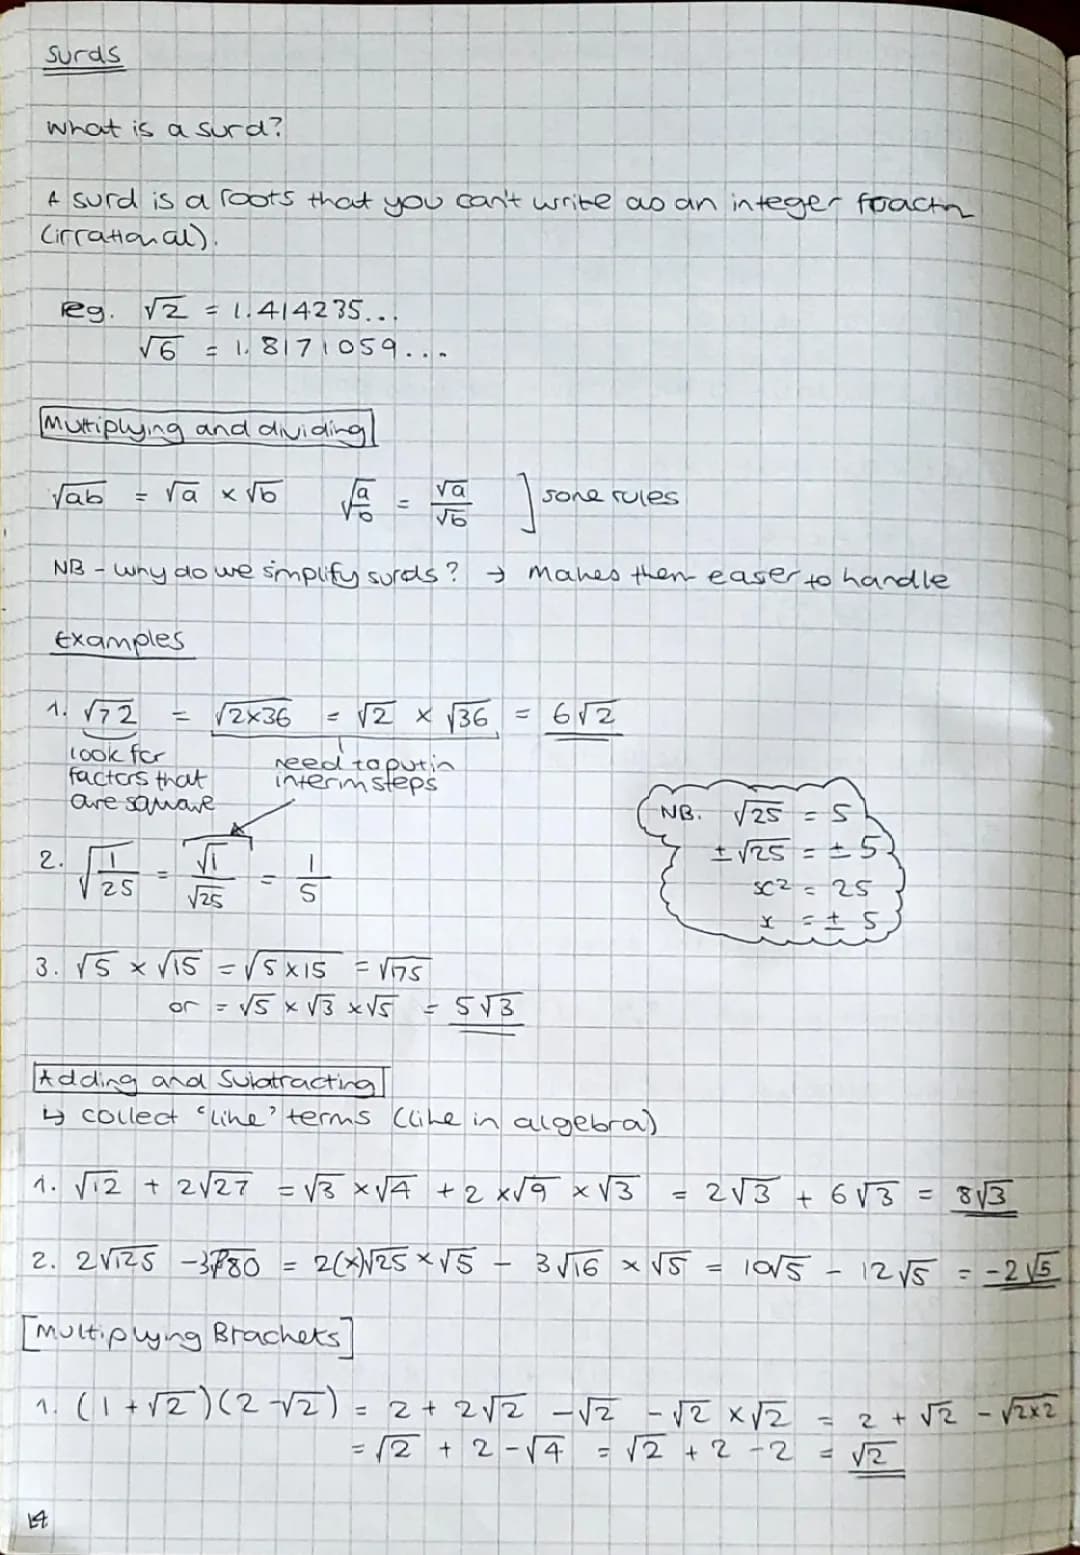 Surds
What is a surd?
A surd is a roots that you can't write as an integer fraction
(irrational).
eg. √2 = 1.414235...
√6 = 1.8171059...
Multiplying and dividing
√ab = √a × √b √(a/b) = √a/√b ] some rules
NB - why do we simplify surds? → makes them easer to handle
Examples
1. √72 = √2×36 = √2 × √36 = 6√2
look for
factors that
are square
need to put in
interim steps
2. √(1/25) = √1/√25 = 1/5
NB. √25 = 5
±√25 = ±5
x² = 25
x = ±5
3. √5 × √15 = √5×15 = √175
or = √5 × √3 × √5 = 5√3
Adding and Subtracting
↳ collect 'like' terms (like in algebra)
1. √12 + 2√27 = √3 × √4 + 2 × √9 × √3 = 2√3 + 6√3 = 8√3
2. 2√125 - 3√80 = 2(×)√25 × √5 - 3√16 × √5 = 10√5 - 12√5 = -2√5
[Multiplying Brackets]
1. (1 + √2)(2 - √2) = 2 + 2√2 - √2 - √2 × √2 = 2 + √2 - √2×2
= √2 + 2 - √4 = √2 + 2 - 2 = √2